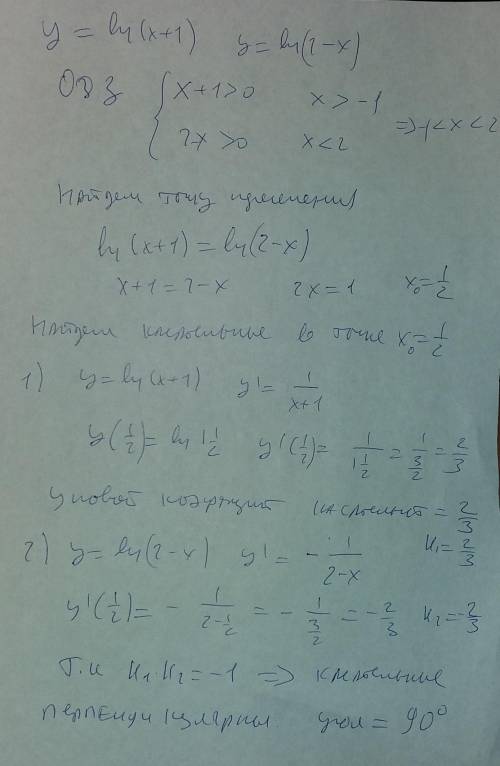 y = ln(x+1) y = ln(2-x)
ОДЗ { x+1>0 x>-1
2-x>0 x<2 => -1<x<2
Найдем точку пересечения
ln(x+1) = ln(2-x)
x+1=2-x 2x=1 x₀=1/2
Найдем касательные в точке x₀=1/2
1) y=ln(x+1) y'= 1/(x+1)
y(1/2)= ln 1 1/2 y'(1/2)= 1/(1 1/2) = 1/(3/2) = 2/3
угловой коэффициент касательной = 2/3
2) y=ln(2-x) y'= -1/(2-x) k₁=2/3
y'(1/2)= - 1/(2-1/2) = - 1/(3/2) = -2/3 k₂=-2/3
Т.к k₁·k₂=-1 => касательные
перпендикулярны угол = 90°